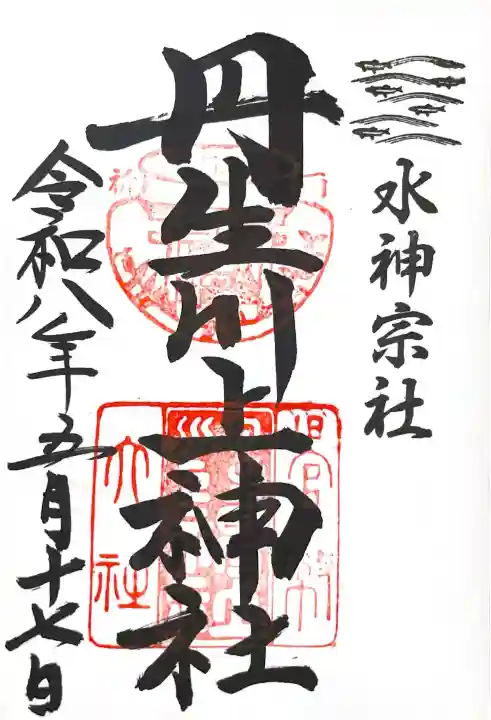 水神宗社
丹生川上神社
令和八年五月十七日
大社